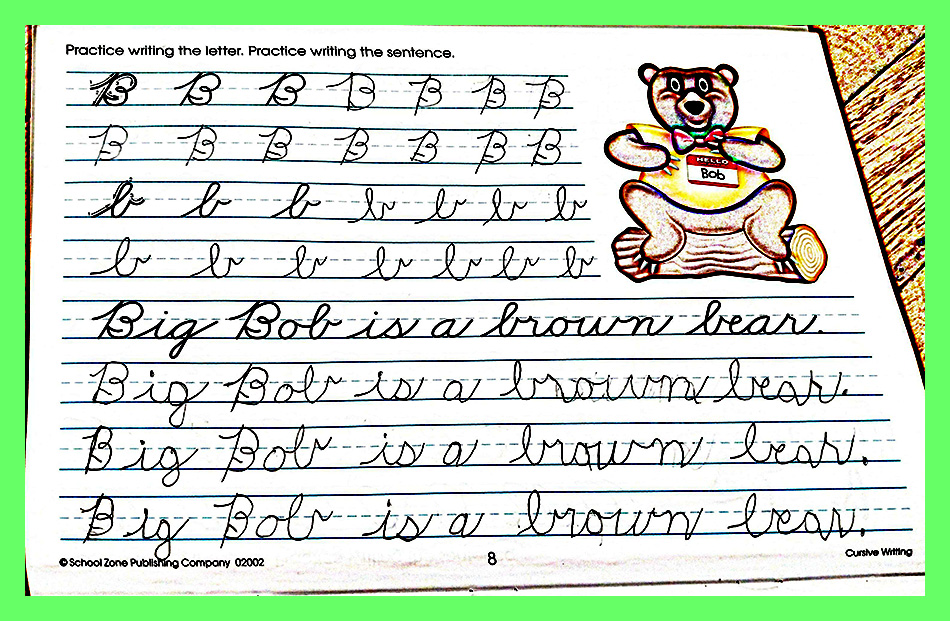 Practice writing the letter. Practice writing the sentence.
B B B B B B B
B B B B B B B
b b b b b b b
b b b b b b b
HELLO
Bob
Big Bob is a brown bear.
Big Bob is a brown bear.
Big Bob is a brown bear.
Big Bob is a brown bear.
© School Zone Publishing Company 02002
8
Cursive Writing